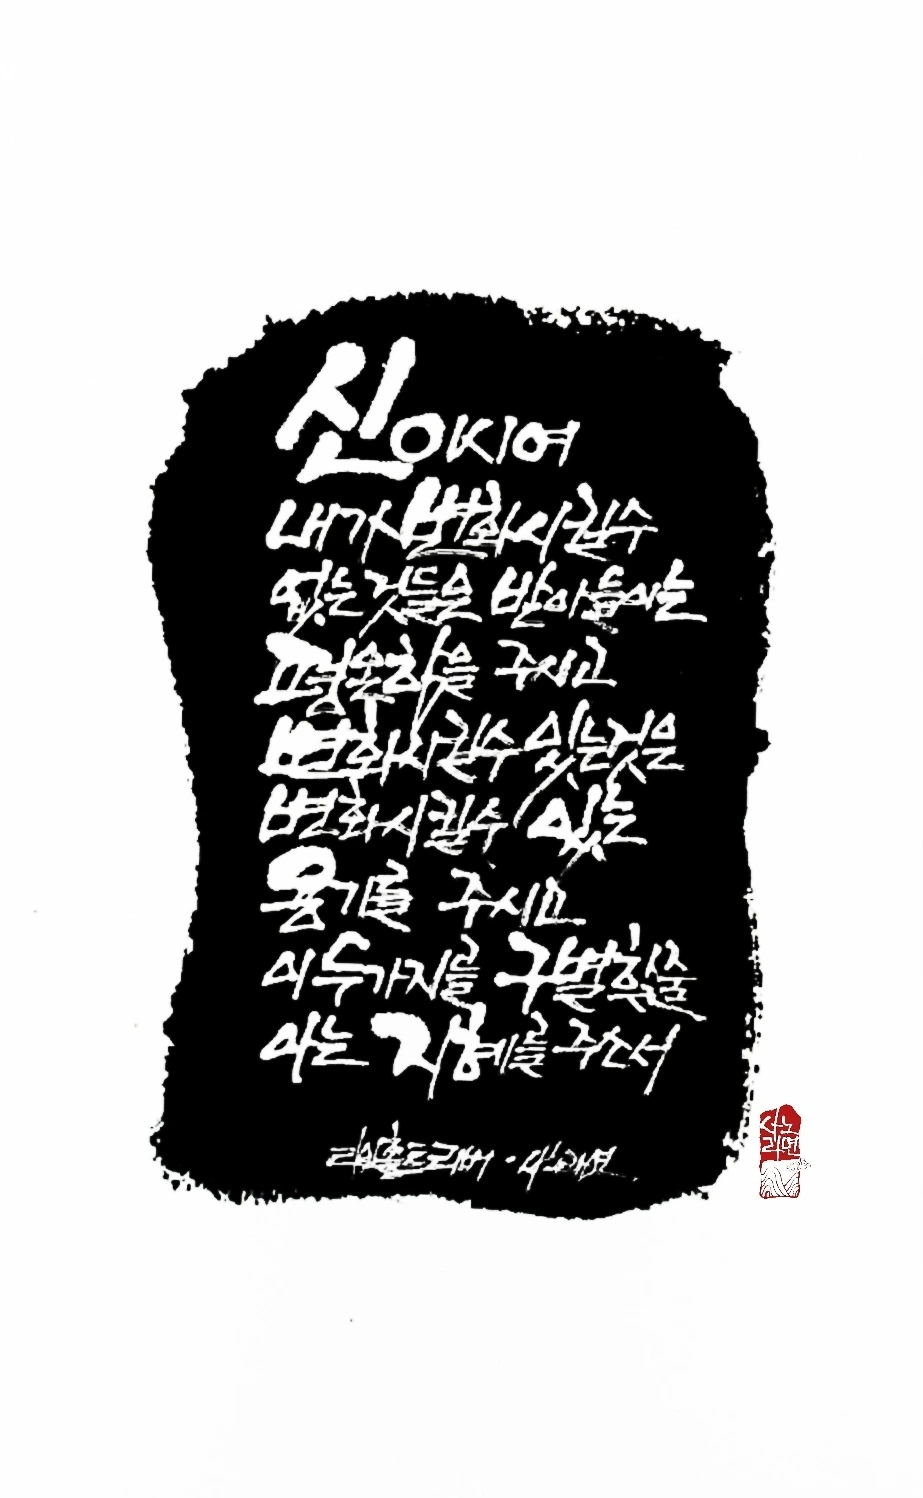 신이시여
내가 변화시킬수
없는것들을 받아들이는
평온함을 주시고
변화시킬수 있는것을
변화시킬수 있는
용기를 주시고
이 두가지를 구별할줄
아는 지혜를 주소서
라인홀트 · 사노라면
사노
라면